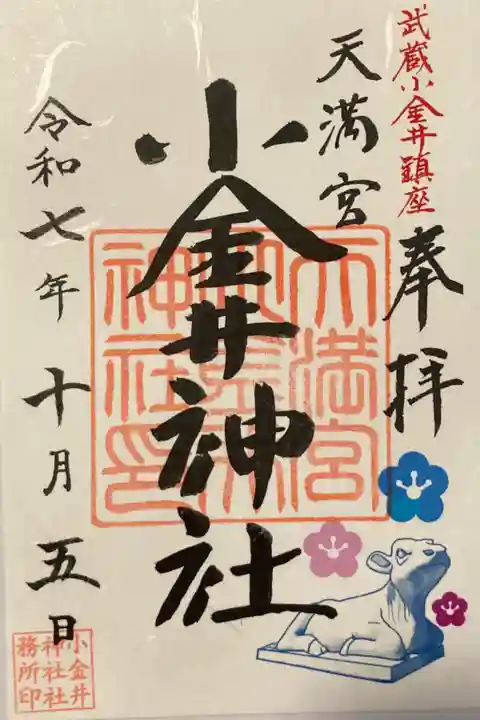 武蔵小金井鎮座
奉拝
天満宮
小金井神社
令和七年十月五日
小金井
神社社
務所印